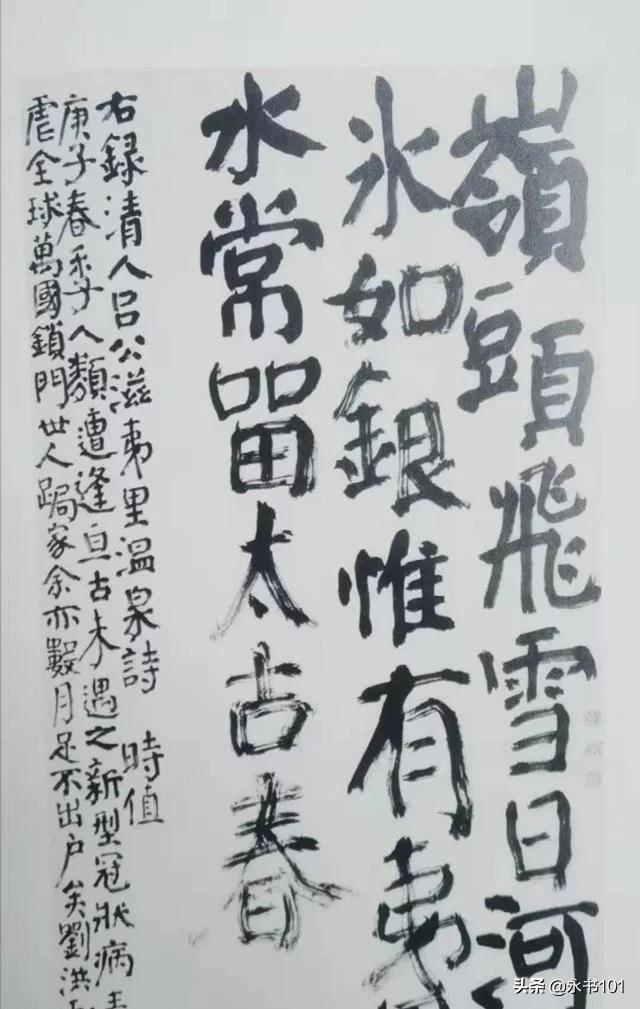 嶺頭飛雪日河
氷如銀惟有夷
水常畱太古春
右録清人呂公滋夷里温泉詩 時值
庚子春季人類遭逢亘古未遇之新型冠狀病毒
虐全球萬國鎖門世人跼家余亦數月足不出户矣劉洪
头条 @永书101